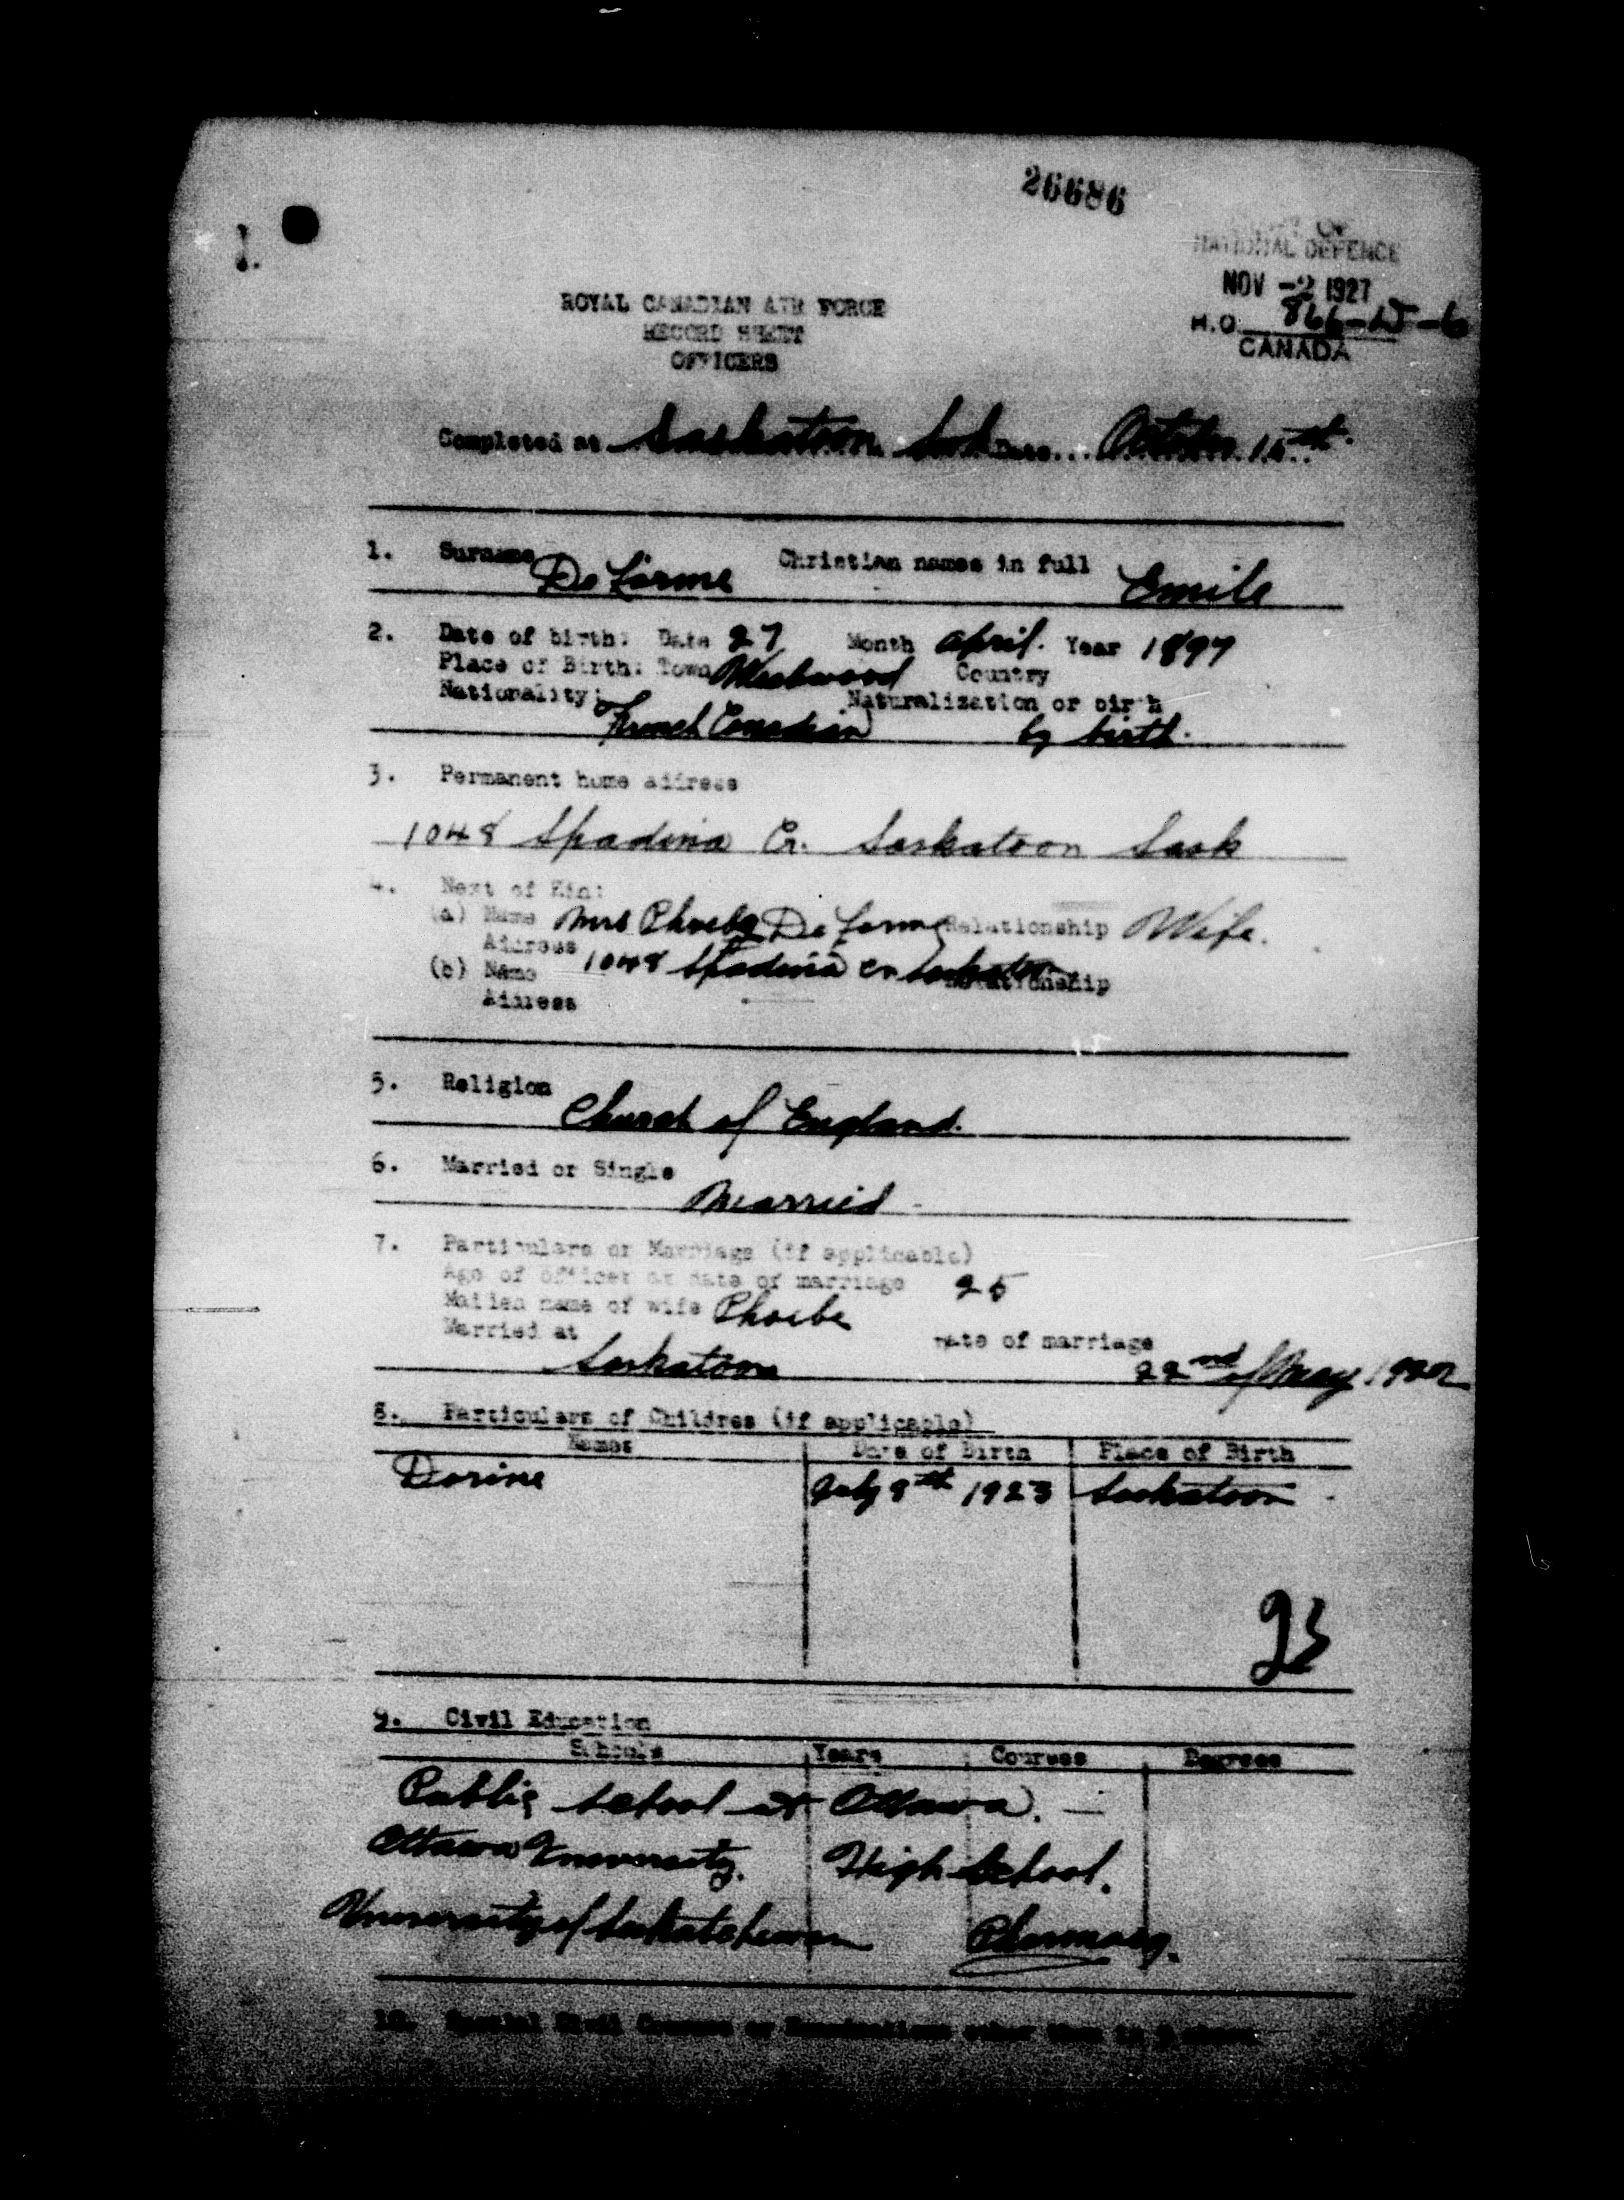 26686
1.
NATIONAL DEFENCE
NOV -2 1927
H.Q. 866-D-6
CANADA
ROYAL CANADIAN AIR FORCE
RECORD SHEET
OFFICERS
Completed at Saskatoon Sask Date October 15th.
1. Surname De Lorme Christian names in full Emile
2. Date of birth: Date 27 Month April. Year 1897
Place of Birth: Town Westwood Country
Nationality: French Canadian Naturalization or birth by birth.
3. Permanent home address
1048 Spadina Cr. Saskatoon Sask
4. Next of Kin:
(a) Name Mrs Phoebe De Lorme Relationship Wife.
Address 1048 Spadina Cr Saskatoon
(b) Name Relationship
Address
5. Religion Church of England.
6. Married or Single Married.
7. Particulars of Marriage (if applicable)
Age of officer at date of marriage 25
Maiden name of wife Phoebe
Married at Saskatoon Date of marriage 22nd of May 1922
8. Particulars of Children (if applicable)
Names Date of Birth Place of Birth
Dorine July 8th 1923 Saskatoon
9. Civil Education
Schools Years Courses Degrees
Public School at Ottawa.
Ottawa University. High School.
University of Saskatchewan Pharmacy.
10. Special Civil Courses or Examinations other than in 9 above.